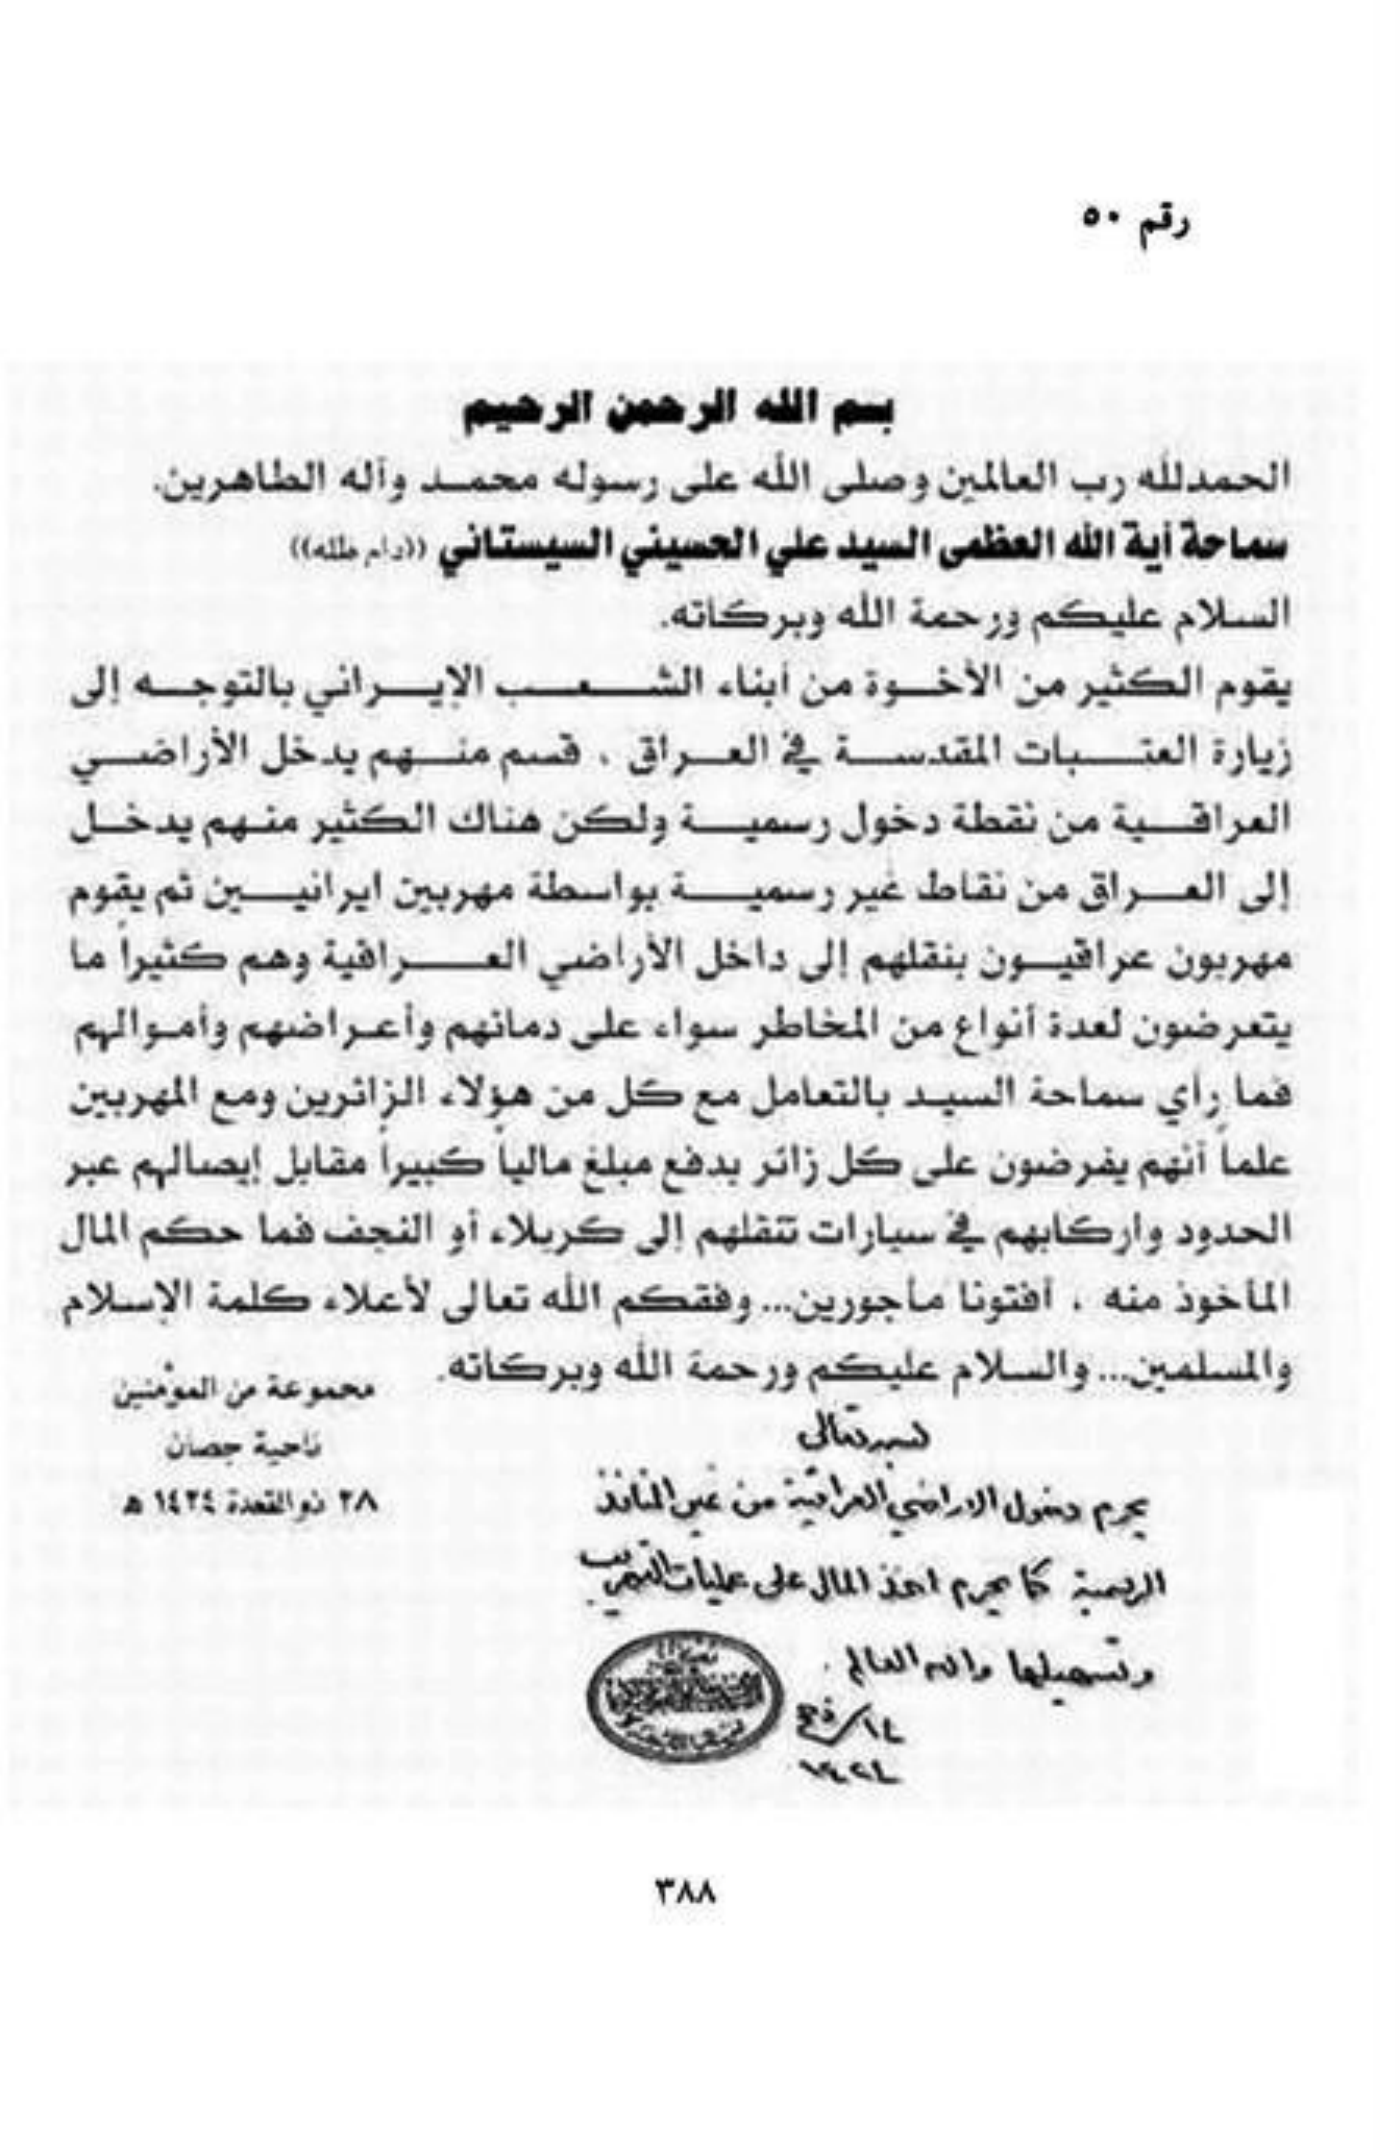 رقم ٥٠
بسم الله الرحمن الرحيم
الحمدلله رب العالمين وصلى الله على رسوله محمد وآله الطاهرين.
سماحة أية الله العظمى السيد علي الحسيني السيستاني ((دام ظله))
السلام عليكم ورحمة الله وبركاته.
يقوم الكثير من الأخوة من أبناء الشعب الإيراني بالتوجه إلى
زيارة العتبات المقدسة في العراق ، قسم منهم يدخل الأراضي
العراقية من نقطة دخول رسمية ولكن هناك الكثير منهم يدخل
إلى العراق من نقاط غير رسمية بواسطة مهربين ايرانيين ثم يقوم
مهربون عراقيون بنقلهم إلى داخل الأراضي العراقية وهم كثيراً ما
يتعرضون لعدة أنواع من المخاطر سواء على دمائهم وأعراضهم وأموالهم
فما رأي سماحة السيد بالتعامل مع كل من هؤلاء الزائرين ومع المهربين
علماً أنهم يفرضون على كل زائر بدفع مبلغ مالياً كبيراً مقابل إيصالهم عبر
الحدود واركابهم في سيارات تنقلهم إلى كربلاء أو النجف فما حكم المال
المأخوذ منه ، أفتونا مأجورين... وفقكم الله تعالى لأعلاء كلمة الإسلام
والمسلمين... والسلام عليكم ورحمة الله وبركاته.
مجموعة من المؤمنين
ناحية جصان
٢٨ ذو القعدة ١٤٢٤ هـ
بسمه تعالى
يحرم دخول الاراضي العراقية من غير المنافذ
الرسمية كما يحرم اخذ المال على عمليات التهريب
وتسهيلها والله العالم .
١٤/ذح
١٤٢٤
٣٨٨